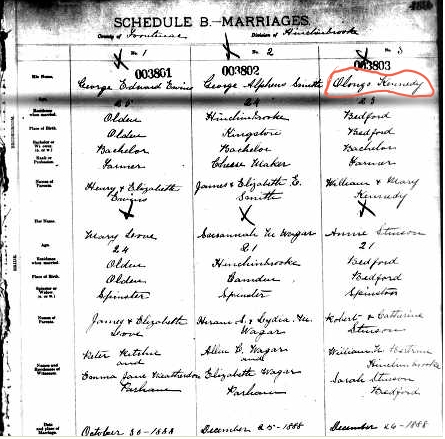 SCHEDULE B.—MARRIAGES.
County of Frontenac Division of Hinchinbrooke
No. 1 2 3
003801 003802 003803
His Name, George Edward George Alpheus Smith Olongo Kennedy
Age, 24 23
Residence when married, Olden Hinchinbrooke Bedford
Place of Birth, Olden Kingston Bedford
Bachelor or Widower (B. or W.) Bachelor Bachelor Bachelor
Rank or Profession, Farmer Cheese Maker Farmer
Names of Parents, Henry & Elizabeth James & Elizabeth E. Smith William & Mary Kennedy
Her Name, Mary Susannah M Wagar Annie Stinson
Age, 24 21 21
Residence when married, Olden Hinchinbrooke Bedford
Place of Birth, Olden Camden Bedford
Spinster or Widow (S. or W.) Spinster Spinster Spinster
Names of Parents, James & Elizabeth Hiram S. & Lydia M. Wagar Robert & Catharine Stinson
Names and Residences of Witnesses, Peter and Emma Jane Parham
Allen C. Wagar and Elizabeth Wagar Parham
William H Hinchinbrooke Sarah Stinson Bedford
Date and place of Marriage, October 30-1888 December 25-1888 December 26-1888